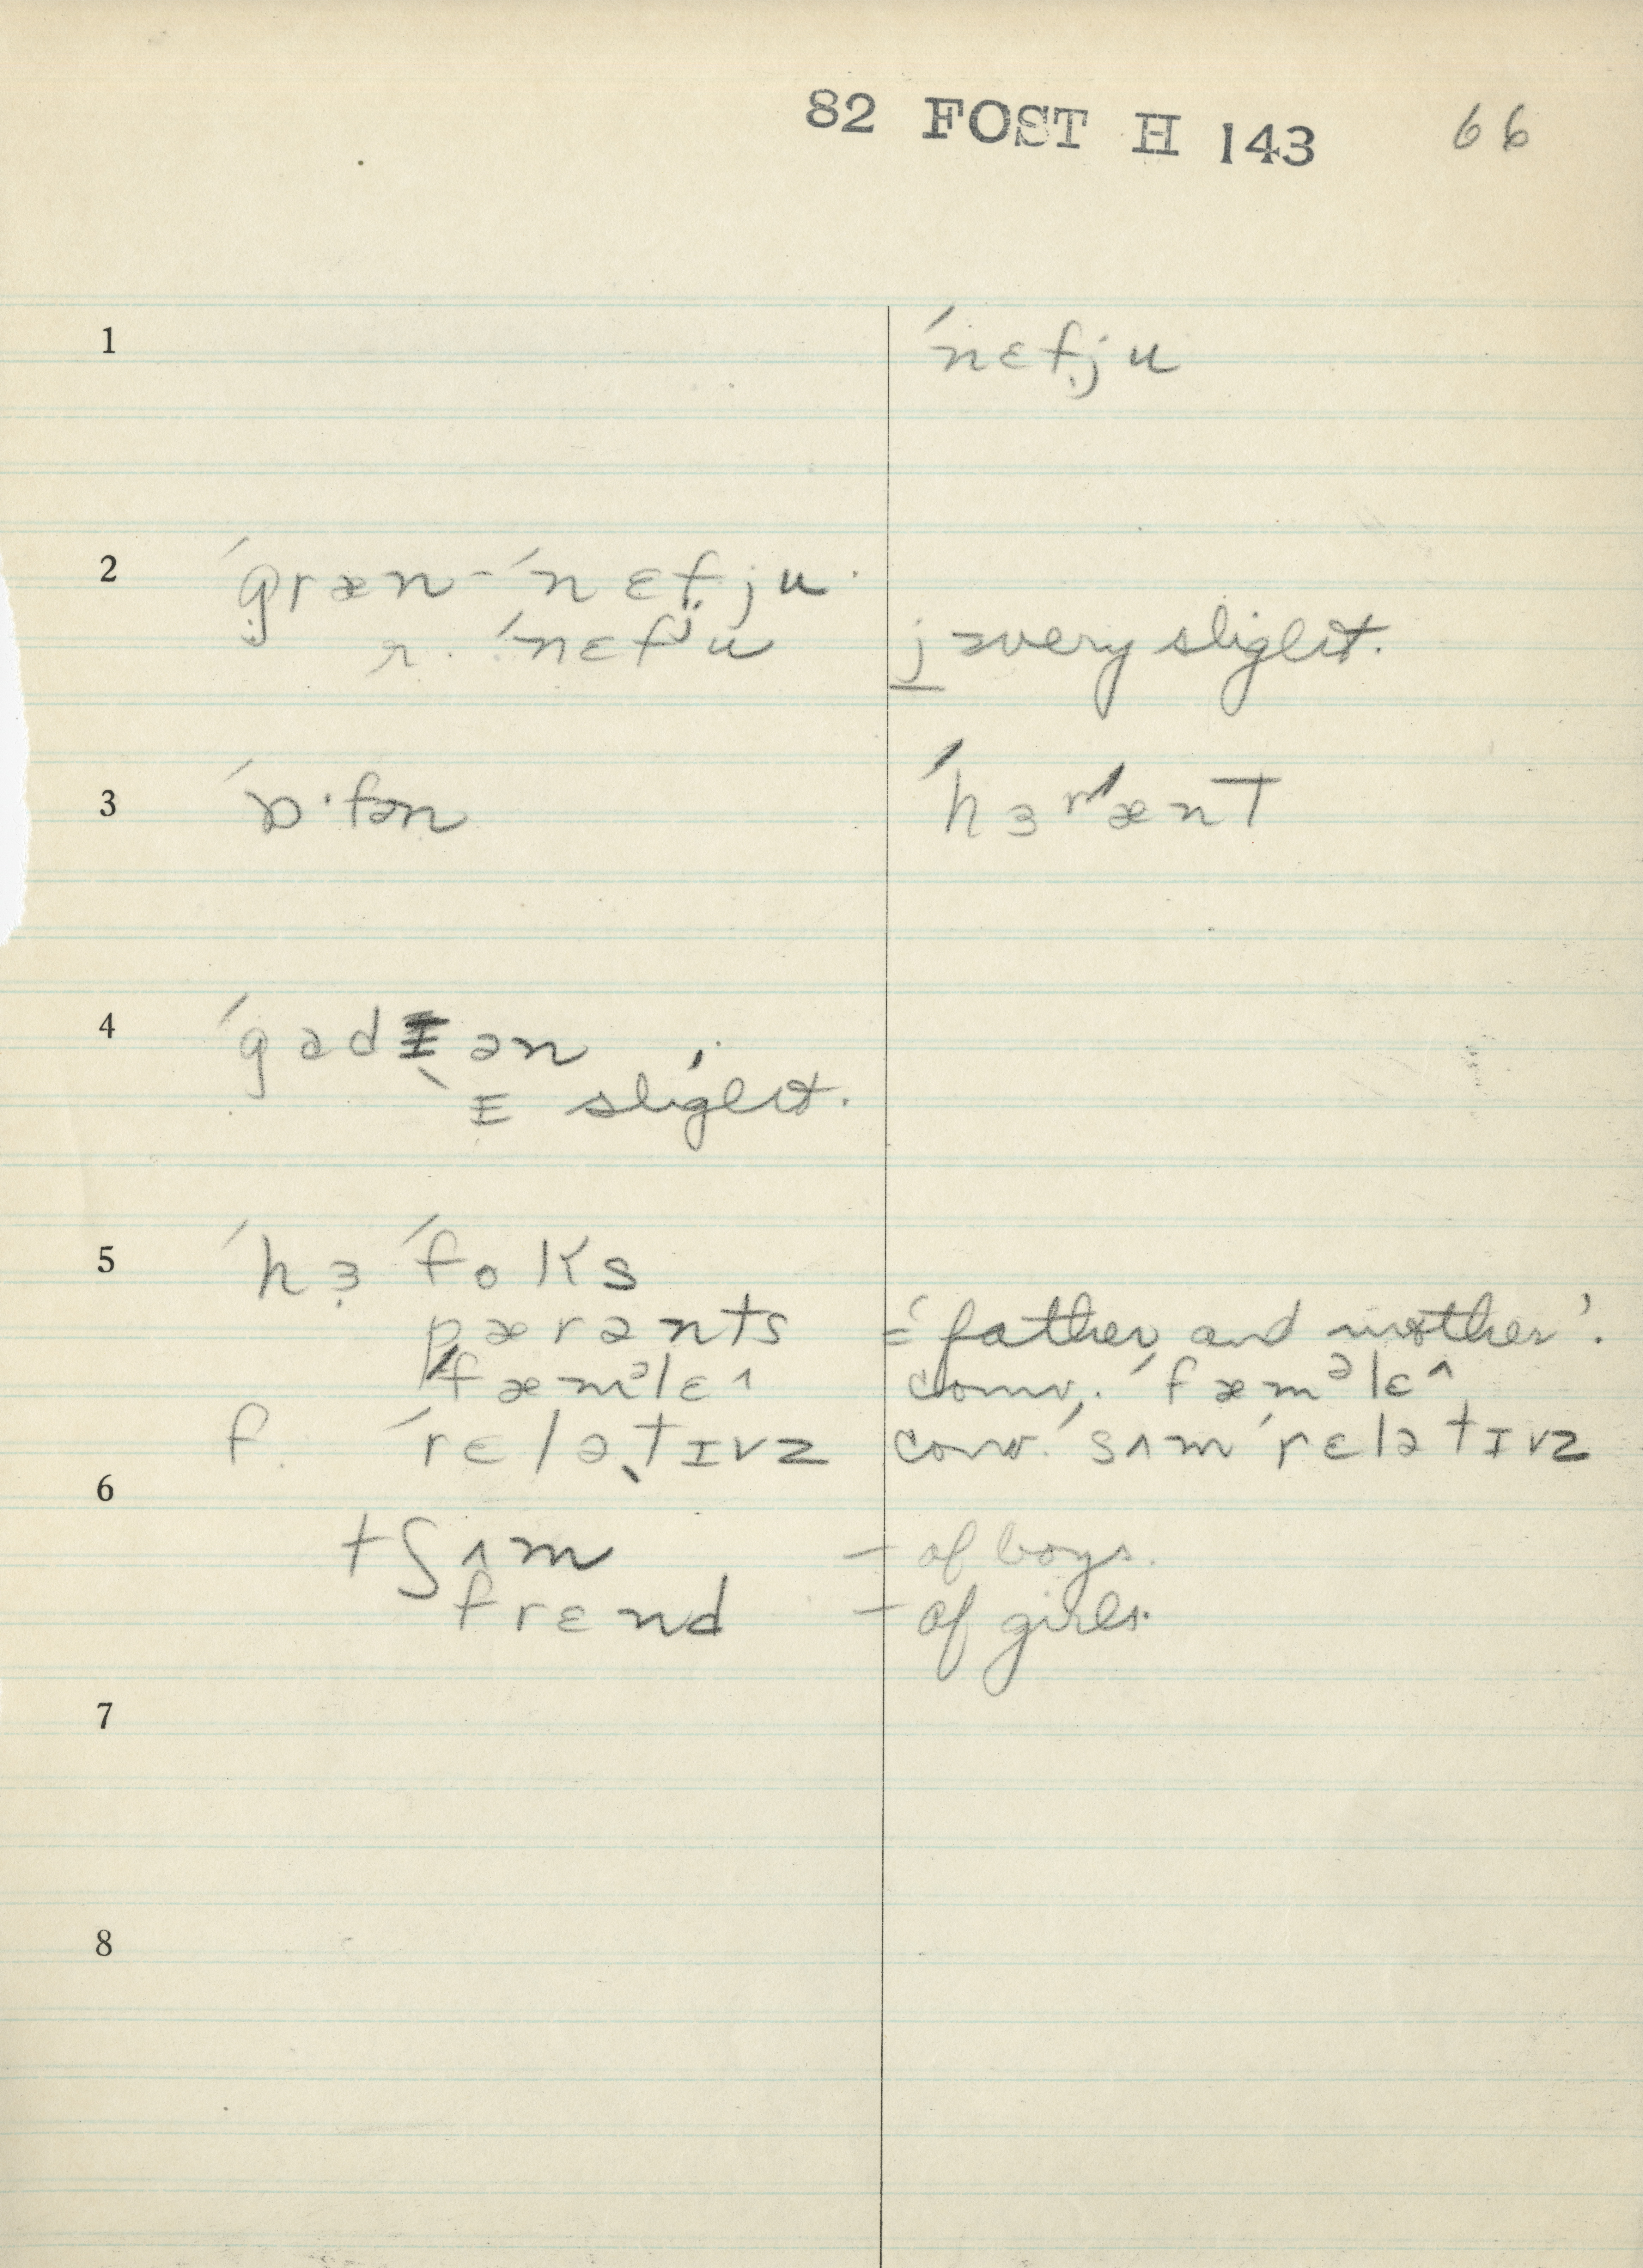 82 FOST H 143 66
1 ´nɛfju
2 ´græn-´nɛfju.
r. ´nɛfʲu j = very slight.
3 ´ɒ·fən ´hɜr´ænt
4 ´gadɪən
ɪ slight.
5 ´hɜ ´foks
pærənts = 'father and mother'.
´fæmᵊlɛ^ conv. ´fæmᵊlɛ^
f. ´rɛlətɪvz conv. ´sʌm ´rɛlətɪvz
6
tʃʌm – of boys.
frɛnd – of girls.
7
8